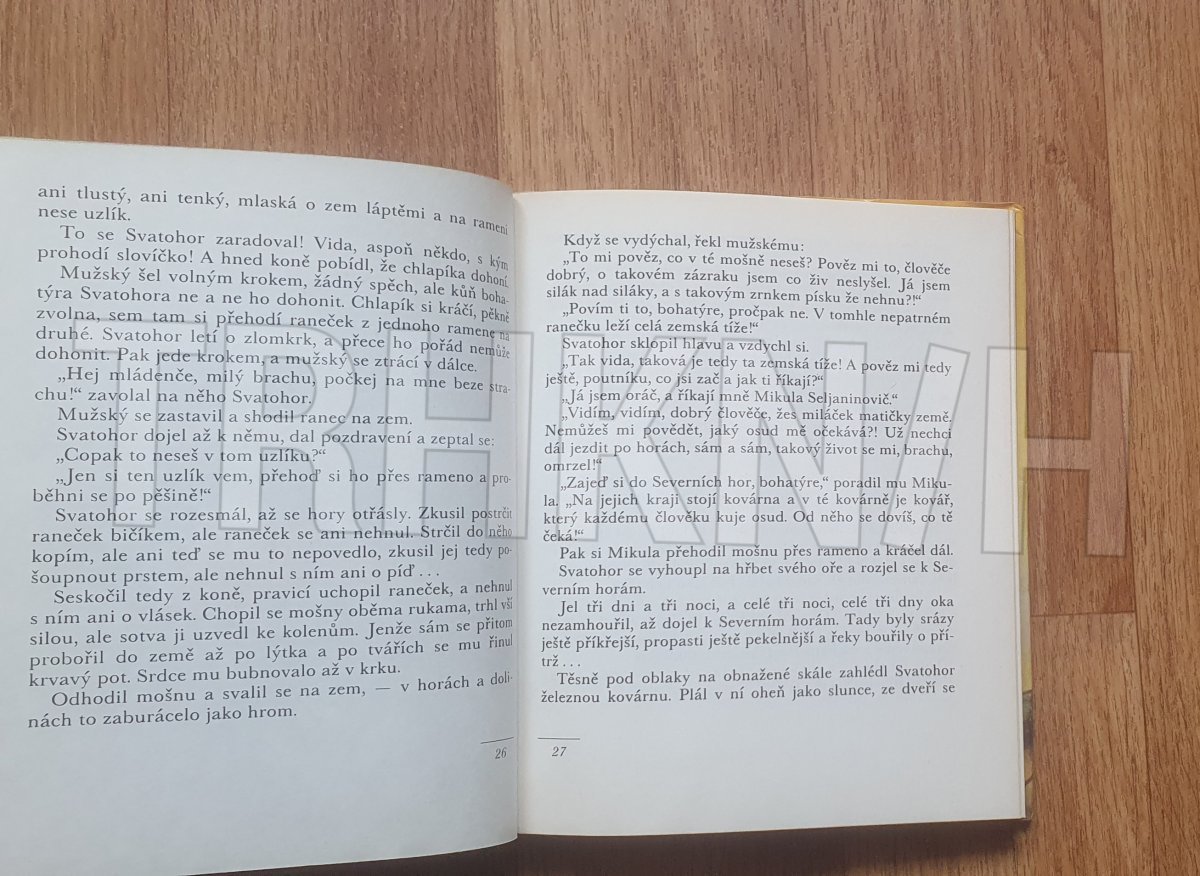 ani tlustý, ani tenký, mlaská o zem láptěmi a na rameni
nese uzlík.
To se Svatohor zaradoval! Vida, aspoň někdo, s kým
prohodí slovíčko! A hned koně pobídl, že chlapíka dohoní.
Mužský šel volným krokem, žádný spěch, ale kůň boha-
týra Svatohora ne a ne ho dohonit. Chlapík si kráčí, pěkně
zvolna, sem tam si přehodí raneček z jednoho ramene na
druhé. Svatohor letí o zlomkrk, a přece ho pořád nemůže
dohonit. Pak jede krokem, a mužský se ztrácí v dálce.
„Hej mládenče, milý brachu, počkej na mne beze stra-
chu!“ zavolal na něho Svatohor.
Mužský se zastavil a shodil ranec na zem.
Svatohor dojel až k němu, dal pozdravení a zeptal se:
„Copak to neseš v tom uzlíku?“
„Jen si ten uzlík vem, přehoď si ho přes rameno a pro-
běhni se po pěšině!“
Svatohor se rozesmál, až se hory otřásly. Zkusil postrčit
raneček bičíkem, ale raneček se ani nehnul. Strčil do něho
kopím, ale ani teď se mu to nepovedlo, zkusil jej tedy po-
šoupnout prstem, ale nehnul s ním ani o píď...
Seskočil tedy z koně, pravicí uchopil raneček, a nehnul
s ním ani o vlásek. Chopil se mošny oběma rukama, trhl vší
silou, ale sotva ji uzvedl ke kolenům. Jenže sám se přitom
probořil do země až po lýtka a po tvářích se mu řinul
krvavý pot. Srdce mu bubnovalo až v krku.
Odhodil mošnu a svalil se na zem, — v horách a doli-
nách to zaburácelo jako hrom.
26
Když se vydýchal, řekl mužskému:
„To mi pověz, co v té mošně neseš? Pověz mi to, člověče
dobrý, o takovém zázraku jsem co živ neslyšel. Já jsem
silák nad siláky, a s takovým zrnkem písku že nehnu?!“
„Povím ti to, bohatýre, pročpak ne. V tomhle nepatrném
ranečku leží celá zemská tíže!“
Svatohor sklopil hlavu a vzdychl si.
„Tak vida, taková je tedy ta zemská tíže! A pověz mi tedy
ještě, poutníku, co jsi zač a jak ti říkají?“
„Já jsem oráč, a říkají mně Mikula Seljaninovič.“
„Vidím, vidím, dobrý člověče, žes miláček matičky země.
Nemůžeš mi povědět, jaký osud mě očekává?! Už nechci
dál jezdit po horách, sám a sám, takový život se mi, brachu,
omrzel!“
„Zajeď si do Severních hor, bohatýre,“ poradil mu Miku-
la. „Na jejich kraji stojí kovárna a v té kovárně je kovář,
který každému člověku kuje osud. Od něho se dovíš, co tě
čeká!“
Pak si Mikula přehodil mošnu přes rameno a kráčel dál.
Svatohor se vyhoupl na hřbet svého oře a rozjel se k Se-
verním horám.
Jel tři dni a tři noci, a celé tři noci, celé tři dny oka
nezamhouřil, až dojel k Severním horám. Tady byly srázy
ještě příkřejší, propasti ještě pekelnější a řeky bouřily o pří-
trž...
Těsně pod oblaky na obnažené skále zahlédl Svatohor
železnou kovárnu. Plál v ní oheň jako slunce, ze dveří se
27
TRHKNIH